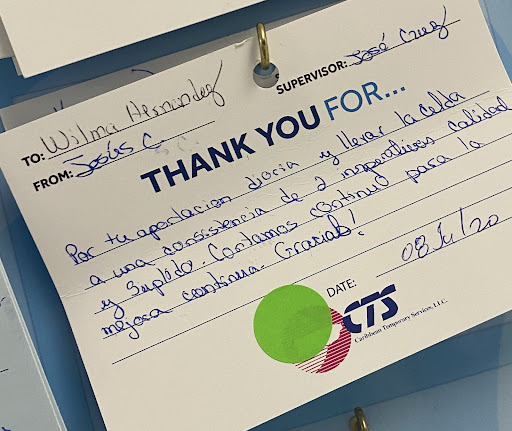 SUPERVISOR: José Cruz
TO: Wilma Hernández
FROM: Jesús C.
THANK YOU FOR...
Por tu aportacion diaria y llevar la celda
a una consistencia de 2 inoperativas calidad
y Suplido. Contamos contigo para la
mejora continua. Gracias!
DATE: 08/Jul/20
CTS
Caribbean Temporary Services, LLC.